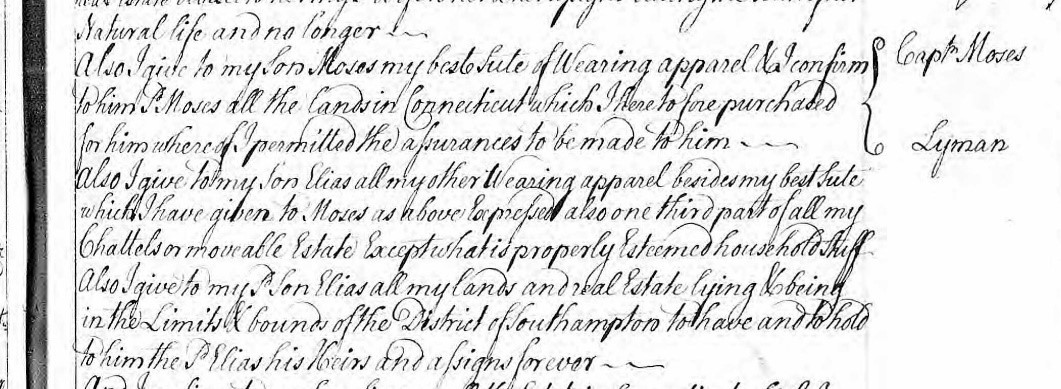 Natural life and no longer
Also I give to my Son Moses my best Sute of Wearing apparel & I confirm
to him Sd. Moses all the Lands in Connecticut which I heretofore purchased
for him whereof I permitted the assurances to be made to him
Capt. Moses
Lyman
Also I give to my Son Elias all my other Wearing apparel besides my best Sute
which I have given to Moses as above Expressed also one third part of all my
Chattels or moveable Estate Except what is properly Esteemed household Stuff
Also I give to my Sd. Son Elias all my lands and real Estate lying & being
in the Limits & bounds of the District of Southampton to have and to hold
to him the Sd. Elias his Heirs and assigns forever